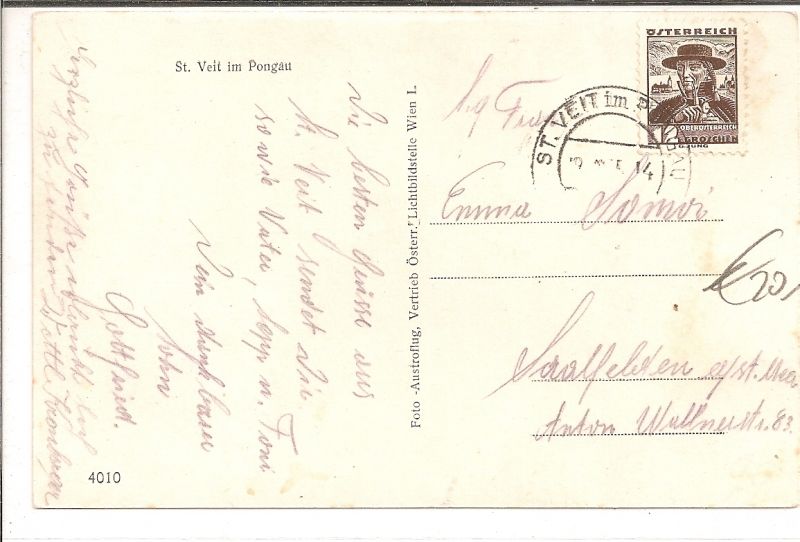 St. Veit im Pongau
Die besten Grüsse aus
St. Veit sendet Dir
sowie Vater, Sepp u. Toni
Dein dankbarer
Sohn
Gottfried.
Herzliche Grüße
4010
Foto-Austroflug, Vertrieb Österr. Lichtbildstelle Wien I.
ÖSTERREICH
12
OBERÖSTERREICH
GROSCHEN
ST. VEIT im PONGAU
Frau
Emma
Saalfelden a/St. Meer
Anton Wallnerstr. 83.